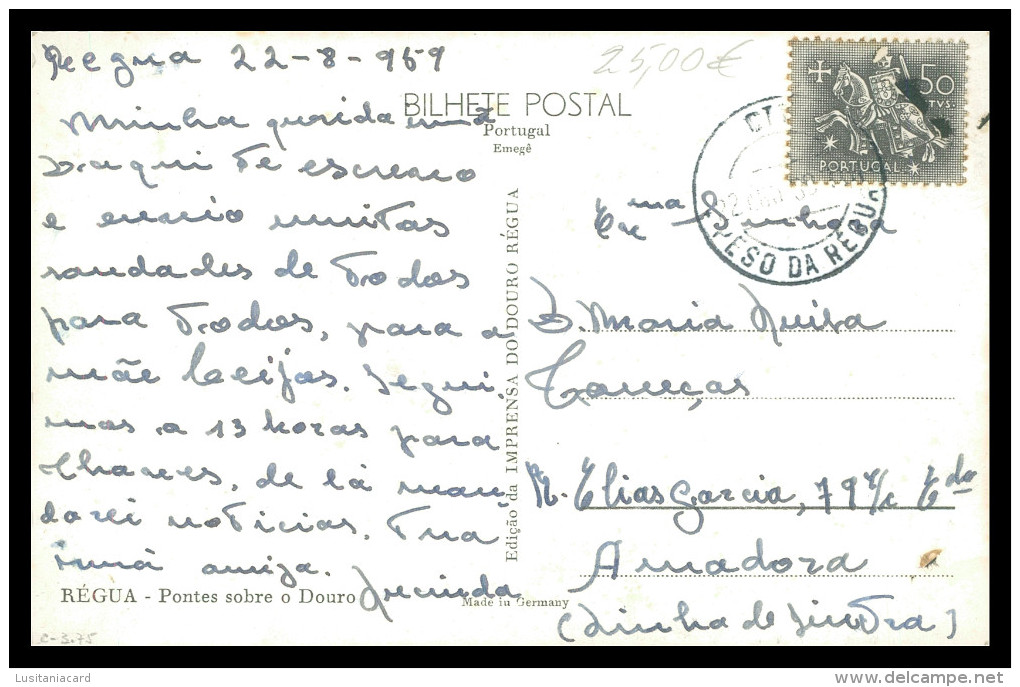 Regua 22-8-959
25,00€
BILHETE POSTAL
Portugal
Emegê
50
CTVS.
PORTUGAL
PESO DA RÉGUA
Minha querida irmã
Daqui te escrevo
e envio muitas
saudades de todos
para todos, para a
mãe beijos. Segui-
mos a 13 horas para
Chaves, de lá man-
darei noticias. Tua
irmã amiga.
Edição da IMPRENSA DO DOURO RÉGUA
Exma Senhora
D. Maria Luisa
R. Elias Garcia, 79 r/c Edo
Amadora
(Linha de Sintra)
RÉGUA - Pontes sobre o Douro
Made in Germany
C-3.75
Lusitaniacard
delcampe.net